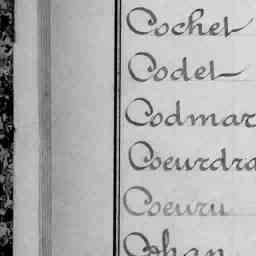 Cochet
Codet
Codmar
Coeurdra
Coeuru
Cohan